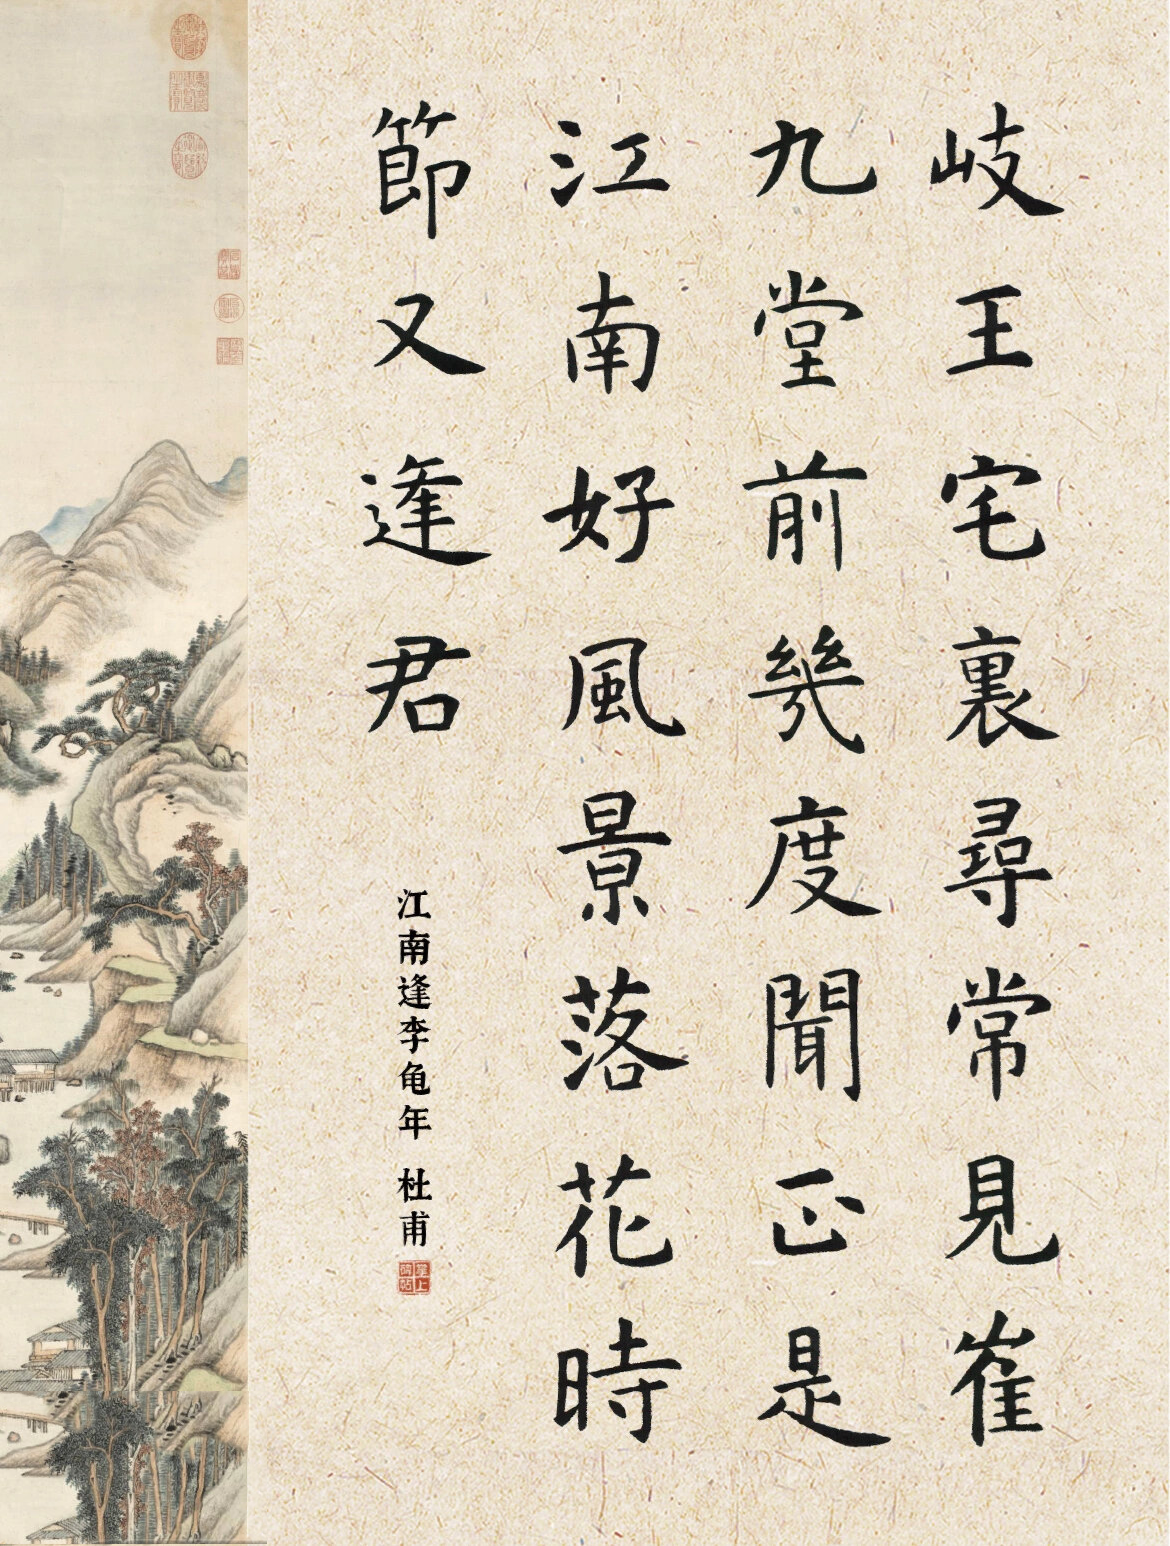 岐王宅裏尋常見崔
九堂前幾度聞正是
江南好風景落花時
節又逢君
江南逢李龟年 杜甫
掌上碑帖